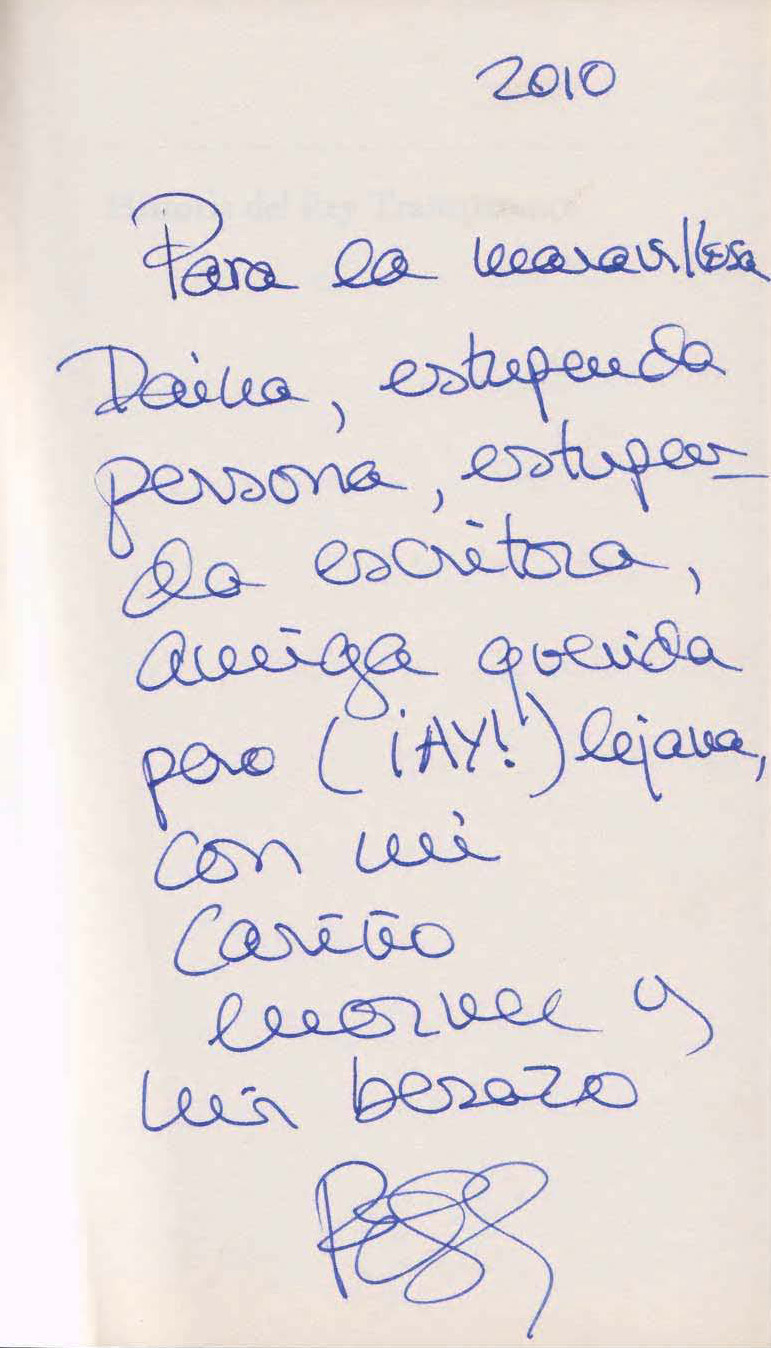 2010
Historia del Rey Transparente
Para la maravillosa
Daína, estupenda
persona, estupen-
da escritora,
amiga querida
pero (¡AY!) lejana,
con mi
cariño
enorme y
mi besazo